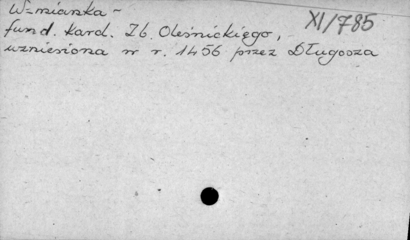 Wzmianka -
XI/785
fund. kard. Zb. Oleśnickiego,
wzniesiona w r. 1456 przez Długosza